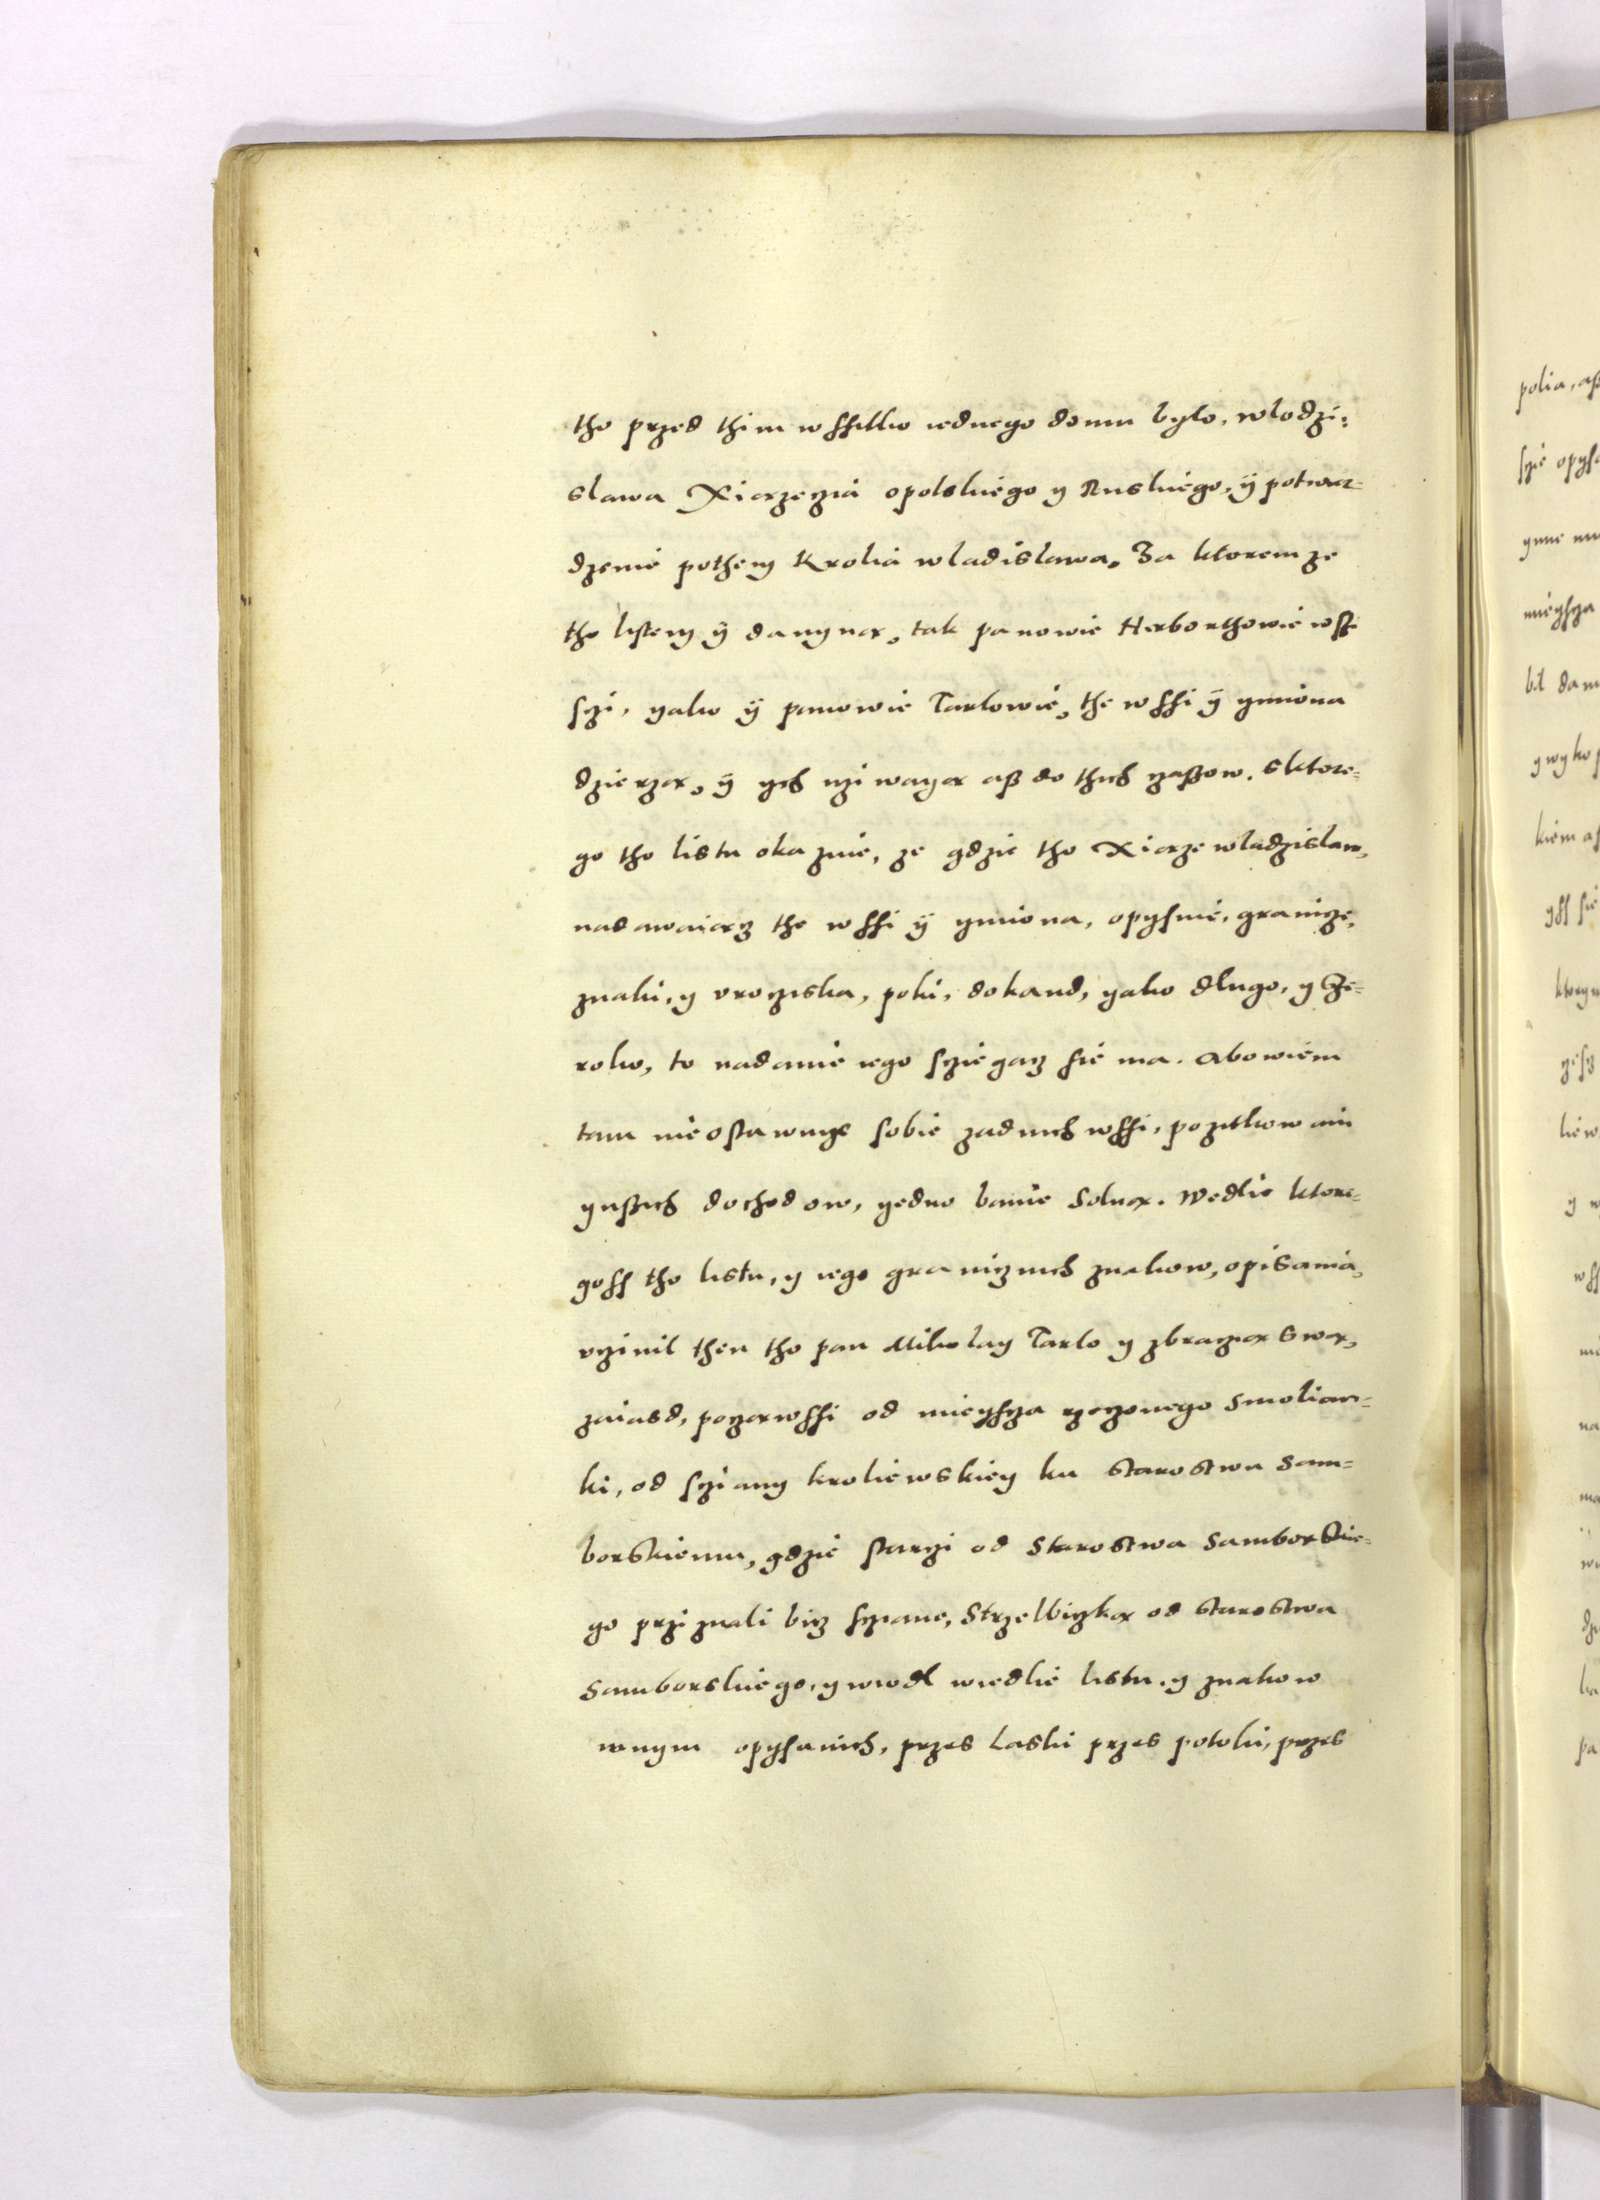 tho przed thim wssitko iednego domu bylo, wlodzi=
slawa Xiązęczia opolskiego y Ruskiego, ÿ potwar=
dzenie pothem Krolia wladislawa. Za ktoremze
tho listem ÿ danyną, tak panowie Herborthowie wssi
sczi, yako ÿ panowie Tarlowie, the wssi ÿ ymiona
dzierzą, ÿ ych uzi wayą aß do thich czaßow. s ktore=
go tho listu okazuie, ze gdzie tho Xiąze wladzislaw,
nadawaiącz the wssi ÿ ymiona, opysuie, granicze,
znaki, y vrocziska, poki, dokand, yako dlugo, y sze=
roko, to nadanie iego sczięgacz sie ma. Abowiem
tam nie ostawuye sobie zadnich wssi, pozitkow ani
ynßich dochodow, yedno banie Solną. Wedlie ktore=
goss tho listu, y iego granicznich znakow, opisania,
vczinil then tho pan Mikolay Tarlo y zbraczią swą,
zaiasd, począwssi od mieyscza rzeczonego Smolian=
ki, od sczi any kroliewskiey ku starostwu Sam=
borskiemu, gdzie starzi od Starostwa Samborskie=
go przi znali bicz sczianę, Strzelbiczką od starostwa
Samborskiego, y wiodl wiedlie listu, y znakow
wnym opysanich, przes Laski przes potoki, przes
polia, aß
sie opys
ynne
mieyscza
bil dam
kiem
yss sie
ktorym